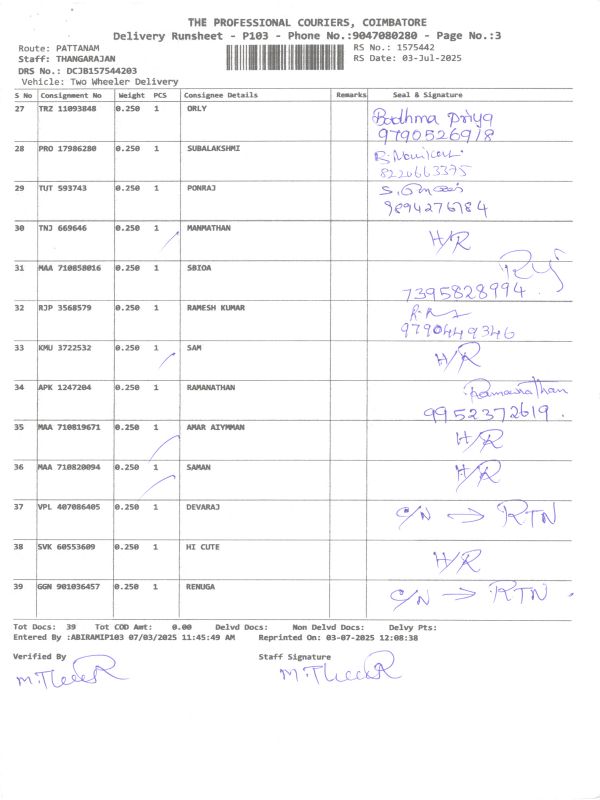 THE PROFESSIONAL COURIERS, COIMBATORE
Delivery Runsheet - P103 - Phone No.:9047080280 - Page No.:3
Route: PATTANAM RS No.: 1575442
Staff: THANGARAJAN RS Date: 03-Jul-2025
DRS No.: DCJB157544203
Vehicle: Two Wheeler Delivery
S No Consignment No Weight PCS Consignee Details Remarks Seal & Signature
27 TRZ 11093848 0.250 1 ORLY Padhma Priya
9790526918
28 PRO 17986280 0.250 1 SUBALAKSHMI
8220663375
29 TUT 593743 0.250 1 PONRAJ
9894276184
30 TNJ 669646 0.250 1 MANMATHAN H/R
31 MAA 710858016 0.250 1 SBIOA
7395828994
32 RJP 3568579 0.250 1 RAMESH KUMAR
9790449346
33 KMU 3722532 0.250 1 SAM H/R
34 APK 1247204 0.250 1 RAMANATHAN Ramanathan
9952372619.
35 MAA 710819671 0.250 1 AMAR AIYMMAN H/R
36 MAA 710820094 0.250 1 SAMAN H/R
37 VPL 407086405 0.250 1 DEVARAJ C/N → RTN
38 SVK 60553609 0.250 1 HI CUTE H/R
39 GGN 901036457 0.250 1 RENUGA C/N → RTN.
Tot Docs: 39 Tot COD Amt: 0.00 Delvd Docs: Non Delvd Docs: Delvy Pts:
Entered By :ABIRAMIP103 07/03/2025 11:45:49 AM Reprinted On: 03-07-2025 12:08:38
Verified By Staff Signature